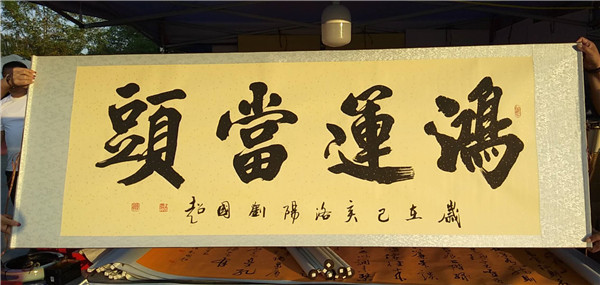 鴻運當頭
歲在己亥洛陽劉國超